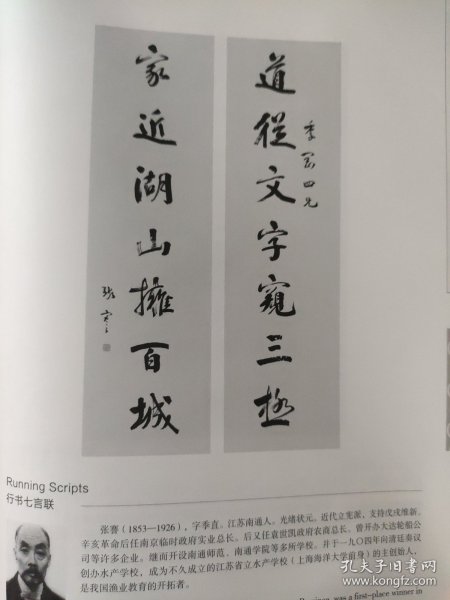 道從文字窺三極
季 四兄
家近湖山擁百城
張謇
Running Scripts
行书七言联
张謇（1853—1926），字季直。江苏南通人。光绪状元。近代立宪派，支持戊戌维新。
辛亥革命后任南京临时政府实业总长。后又任袁世凯政府农商总长。曾开办大达轮船公
司等许多企业。继而开设南通师范、南通学院等多所学校。并于一九〇四年向清廷奏议
创办水产学校，成为不久成立的江苏省立水产学校（上海海洋大学前身）的主创始人，
是我国渔业教育的开拓者。
was a first-place winner in
孔夫子旧书网